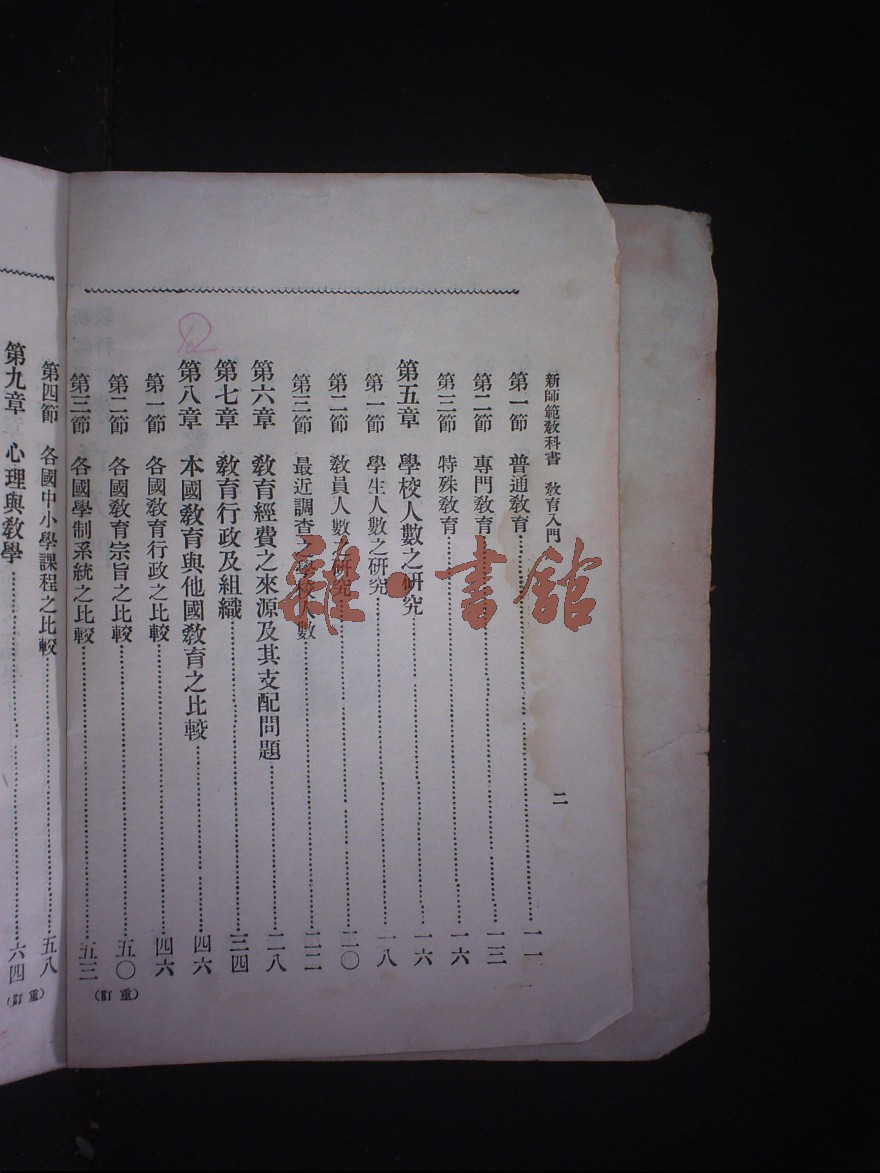 新師範教科書　教育入門
二
第一節　普通教育……一一
第二節　專門教育……一三
第三節　特殊教育……一六
第五章　學校人數之研究……一六
第一節　學生人數之研究……一八
第二節　教員人數之研究……二〇
第三節　最近調查之學校人數……二二
第六章　教育經費之來源及其支配問題……二八
第七章　教育行政及組織……三四
第八章　本國教育與他國教育之比較……四六
第一節　各國教育行政之比較……四六
第二節　各國教育宗旨之比較……五〇
(重訂)
第三節　各國學制系統之比較……五三
第四節　各國中小學課程之比較……五八
第九章　心理與教學……六四
(重訂)
雜·書館